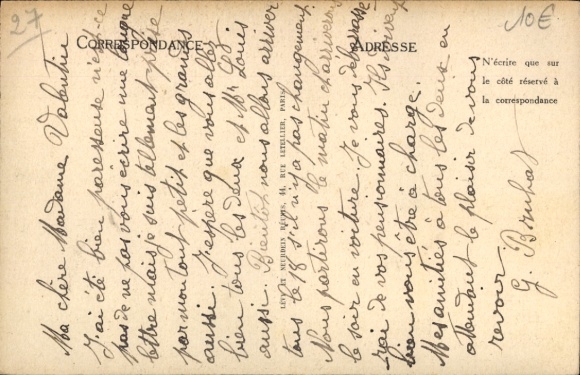 27
10€
CORRESPONDANCE
ADRESSE
N'écrire que sur
le côté réservé à
la correspondance
LÉVY ET NEURDEIN RÉUNIS, 44, RUE LETELLIER, PARIS
Ma chère Madame Valentin
J'ai été bien paresseuse n'est-ce
pas de ne pas vous écrire une longue
lettre mais je suis tellement prise
par mon tout petit et les grands
aussi. J'espère que vous allez
bien tous les deux et Mr Louis
aussi. Bientôt nous allons arriver
tous le 18 s'il n'y a pas changement.
Nous partirons le matin et arriverons
le soir en voiture. Je vous débarasse
rai de vos pensionnaires. Ils doivent
bien vous être à charge.
Mes amitiés à tous les deux en
attendant le plaisir de vous
revoir.
G.